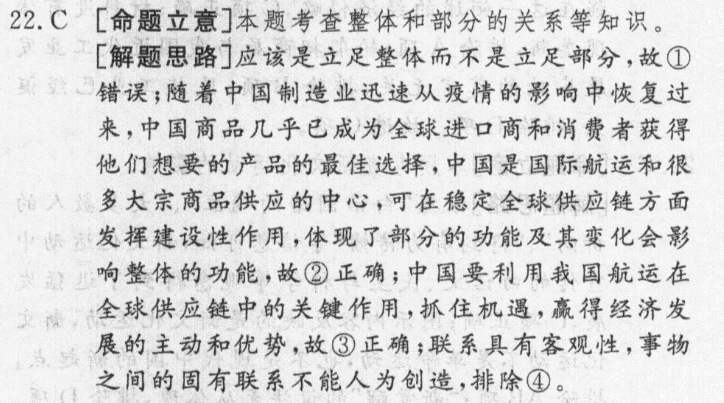 22.C [命题立意]本题考查整体和部分的关系等知识。
[解题思路]应该是立足整体而不是立足部分,故①
错误;随着中国制造业迅速从疫情的影响中恢复过
来,中国商品几乎已成为全球进口商和消费者获得
他们想要的产品的最佳选择,中国是国际航运和很
多大宗商品供应的中心,可在稳定全球供应链方面
发挥建设性作用,体现了部分的功能及其变化会影
响整体的功能,故②正确;中国要利用我国航运在
全球供应链中的关键作用,抓住机遇,赢得经济发
展的主动和优势,故③正确;联系具有客观性,事物
之间的固有联系不能人为创造,排除④。